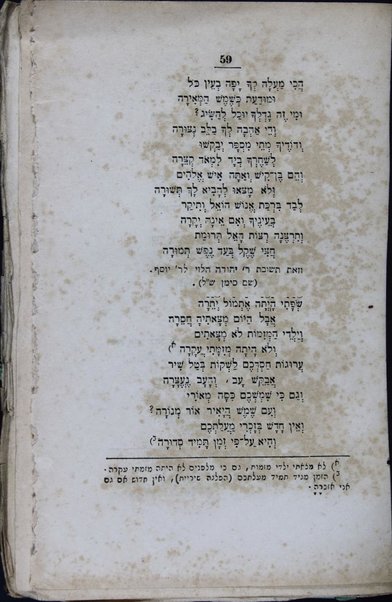 59
הֲכִי מַעֲלָה לְךָ יָפָה בְעֵין כֹּל
וּמוּדַעַת כְּשֶׁמֶשׁ הַמְּאִירָה
וּמִי זֶה גָדְלְךָ יוּכַל לְהַשִּׂיג?
וְהֵי אַהֲבָה לְךָ בַּלֵּב נְצוּרָה
וְדוֹדֶיךָ מְתֵי מִסְפָּר וְבִקְשׁוּ
לְשַׁחֶרְךָ בְּיָד לִמְאֹד קְצָרָה
וְהֵם בֶּן־קִישׁ וְאַתָּה אִישׁ אֱלֹהִים
וְלֹא מָצְאוּ לְהָבִיא לָךְ תְּשׁוּרָה
לְבַד בִּרְכַּת אֱנוֹשׁ הוֹאֵל וְתִיקַר
בְּעֵינֶיךָ וְאִם אֵינָהּ יְקָרָה
וְתִרְצֶנָּה רְצוֹת הָאֵל תְּרוּמַת
חֲצִי שֶׁקֶל בְּעַד נֶפֶשׁ תְּמוּרָה
וזאת תשובת ר׳ יהודה הלוי לר׳ יוסף.
(שם סימן ש״ל).
שְׂפָתִי הָיְתָה אֶתְמוֹל יְתֵרָה
אֲבָל הַיּוֹם מְצָאתִיהָ חֲסֵרָה
וְיַלְדֵי הַמְּזִמּוֹת לֹא מְצָאתִים
וְלֹא הָיְתָה מְזִמָּתִי עֲקָרָה א)
עֲרוּגוֹת חַסְדְּכֶם לַשְׁקוֹת בְּטַל שִׁיר
אֲבַקֵּשׁ עָב, וְהָעָב נֶעֱצָרָה
וְגַם כִּי שִׁמְשְׁכֶם כִּסָּה מְאוֹרִי
וְעִם שֶׁמֶשׁ הֲיָאִיר אוֹר מְנוֹרָה?
וְאֵין חָדָשׁ בְּזָכְרִי מַעֲלַתְכֶם
וְהִיא עַל־פִּי זְמָן תָּמִיד סְדוּרָה ב)
א) לא מצאתי ילדי מזמות, גם כי מלפנים לא היתה מזמתי עקרה.
ב) הזמן מגיד תמיד מעלתכם (הפלגה שירית), ואין חדוש אם גם
אני אזכרה.